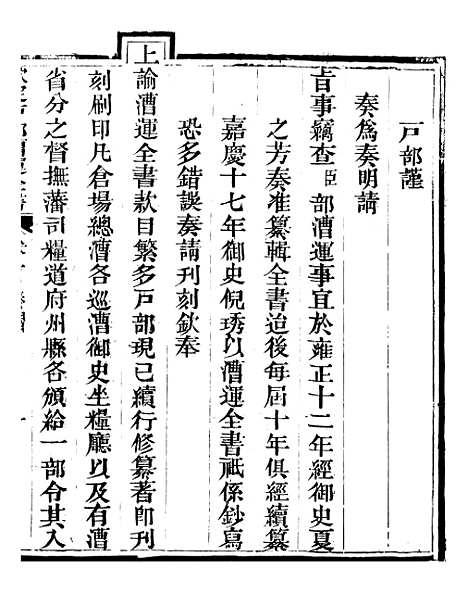 戸部謹
奏爲奏明請
旨事竊查臣部漕運事宜於雍正十二年經御史夏
之芳奏准纂輯全書迨後每屆十年俱經續纂
嘉慶十七年御史倪琇以漕運全書祗係鈔寫
恐多錯誤奏請刊刻欽奉
上諭漕運全書款目繁多戸部現已續行修纂著卽刊
刻刷印凡倉場總漕各巡漕御史坐糧廳以及有漕
省分之督撫藩司糧道府州縣各頒給一部令其入